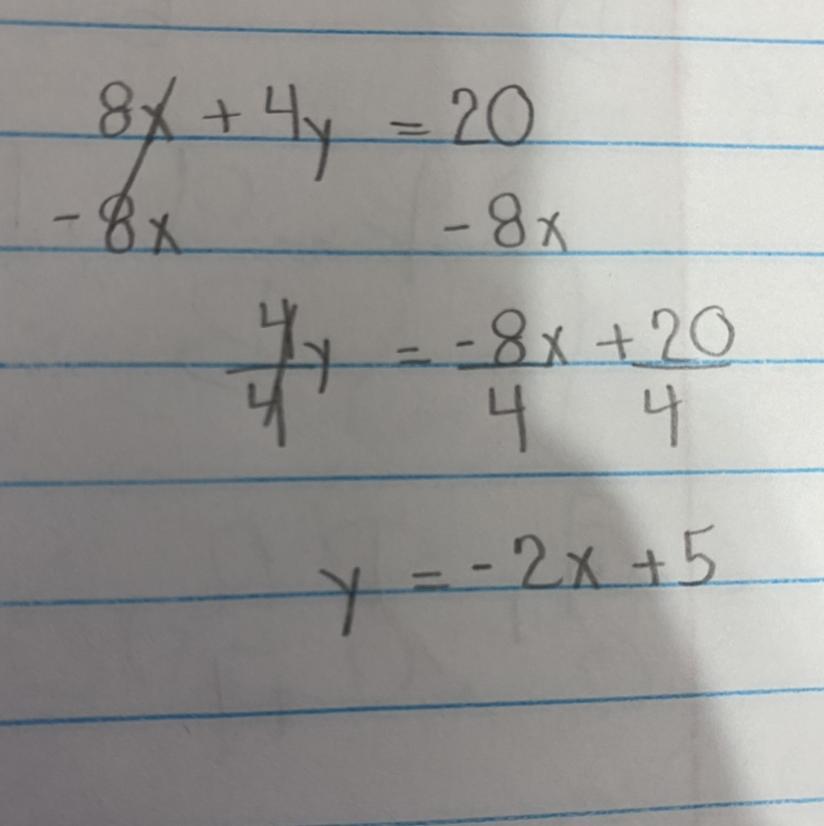 8x + 4y = 20
-8x -8x
4/4 y = -8x/4 + 20/4
y = -2x + 5